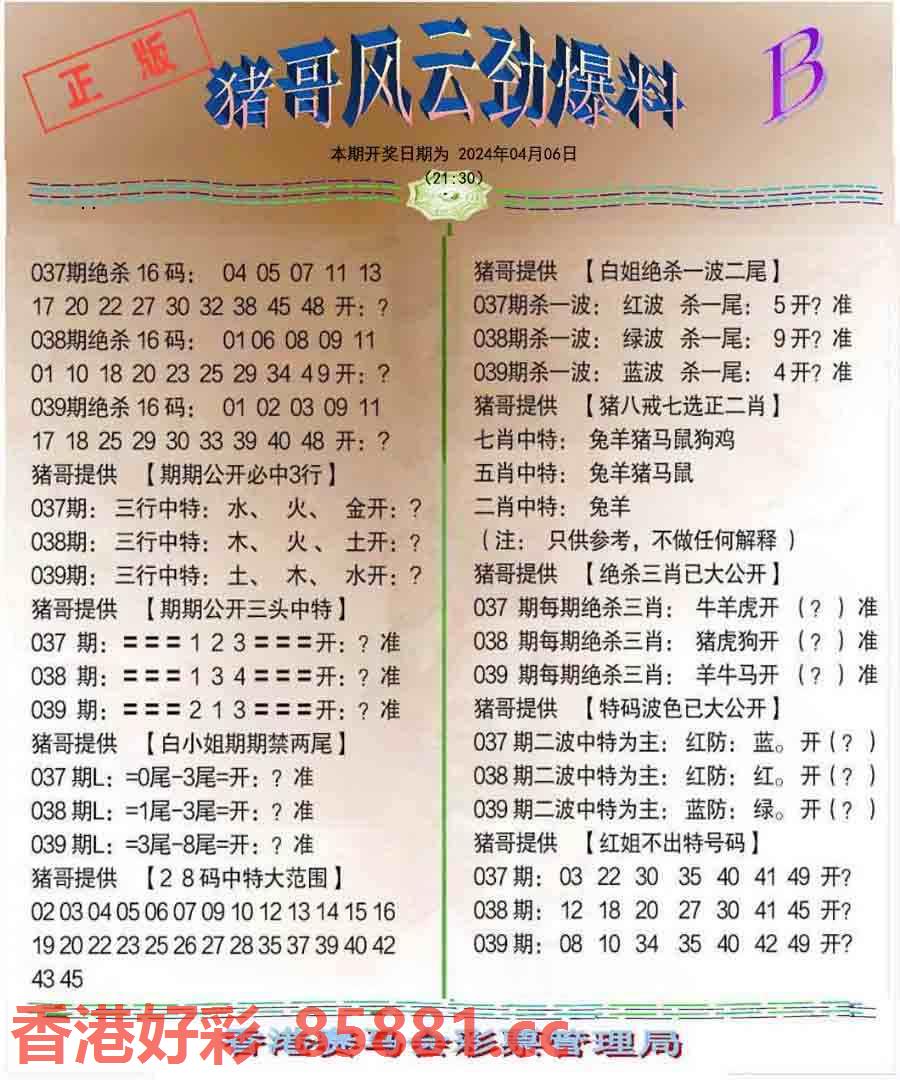 正版
猪哥风云劲爆料
B
本期开奖日期为 2024年04月06日
(21:30)
037期绝杀16码： 04 05 07 11 13
17 20 22 27 30 32 38 45 48 开：?
038期绝杀16码： 01 06 08 09 11
01 10 18 20 23 25 29 34 49开：?
039期绝杀16码： 01 02 03 09 11
17 18 25 29 30 33 39 40 48 开：?
猪哥提供 【期期公开必中3行】
037期：三行中特：水、 火、 金开：?
038期：三行中特：木、 火 、 土开：?
039期：三行中特：土、 木、 水开：?
猪哥提供 【期期公开三头中特】
037 期：===1 2 3===开：? 准
038 期：===1 3 4===开：? 准
039 期：===2 1 3===开：? 准
猪哥提供 【白小姐期期禁两尾】
037期L：=0尾-3尾=开：? 准
038期L：=1尾-3尾=开：? 准
039期L：=3尾-8尾=开：? 准
猪哥提供 【2 8码中特大范围】
02 03 04 05 06 07 09 10 12 13 14 15 16
19 20 22 23 25 26 27 28 35 37 39 40 42
43 45
猪哥提供 【白姐绝杀一波二尾】
037期杀一波： 红波 杀一尾： 5开? 准
038期杀一波： 绿波 杀一尾： 9开? 准
039期杀一波： 蓝波 杀一尾： 4开? 准
猪哥提供 【猪八戒七选正二肖】
七肖中特： 兔羊猪马鼠狗鸡
五肖中特： 兔羊猪马鼠
二肖中特： 兔羊
（注： 只供参考，不做任何解释）
猪哥提供 【绝杀三肖已大公开】
037 期每期绝杀三肖： 牛羊虎开 （? ）准
038 期每期绝杀三肖： 猪虎狗开 （? ）准
039 期每期绝杀三肖： 羊牛马开 （? ）准
猪哥提供 【特码波色已大公开】
037期二波中特为主：红防：蓝。开（? ）
038期二波中特为主：红防：红。开（? ）
039期二波中特为主：蓝防：绿。开（? ）
猪哥提供 【红姐不出特号码】
037期：03 22 30 35 40 41 49 开?
038期：12 18 20 27 30 41 45 开?
039期：08 10 34 35 40 42 49 开?
香港好彩 85881.cc
香港赛马会彩票管理局